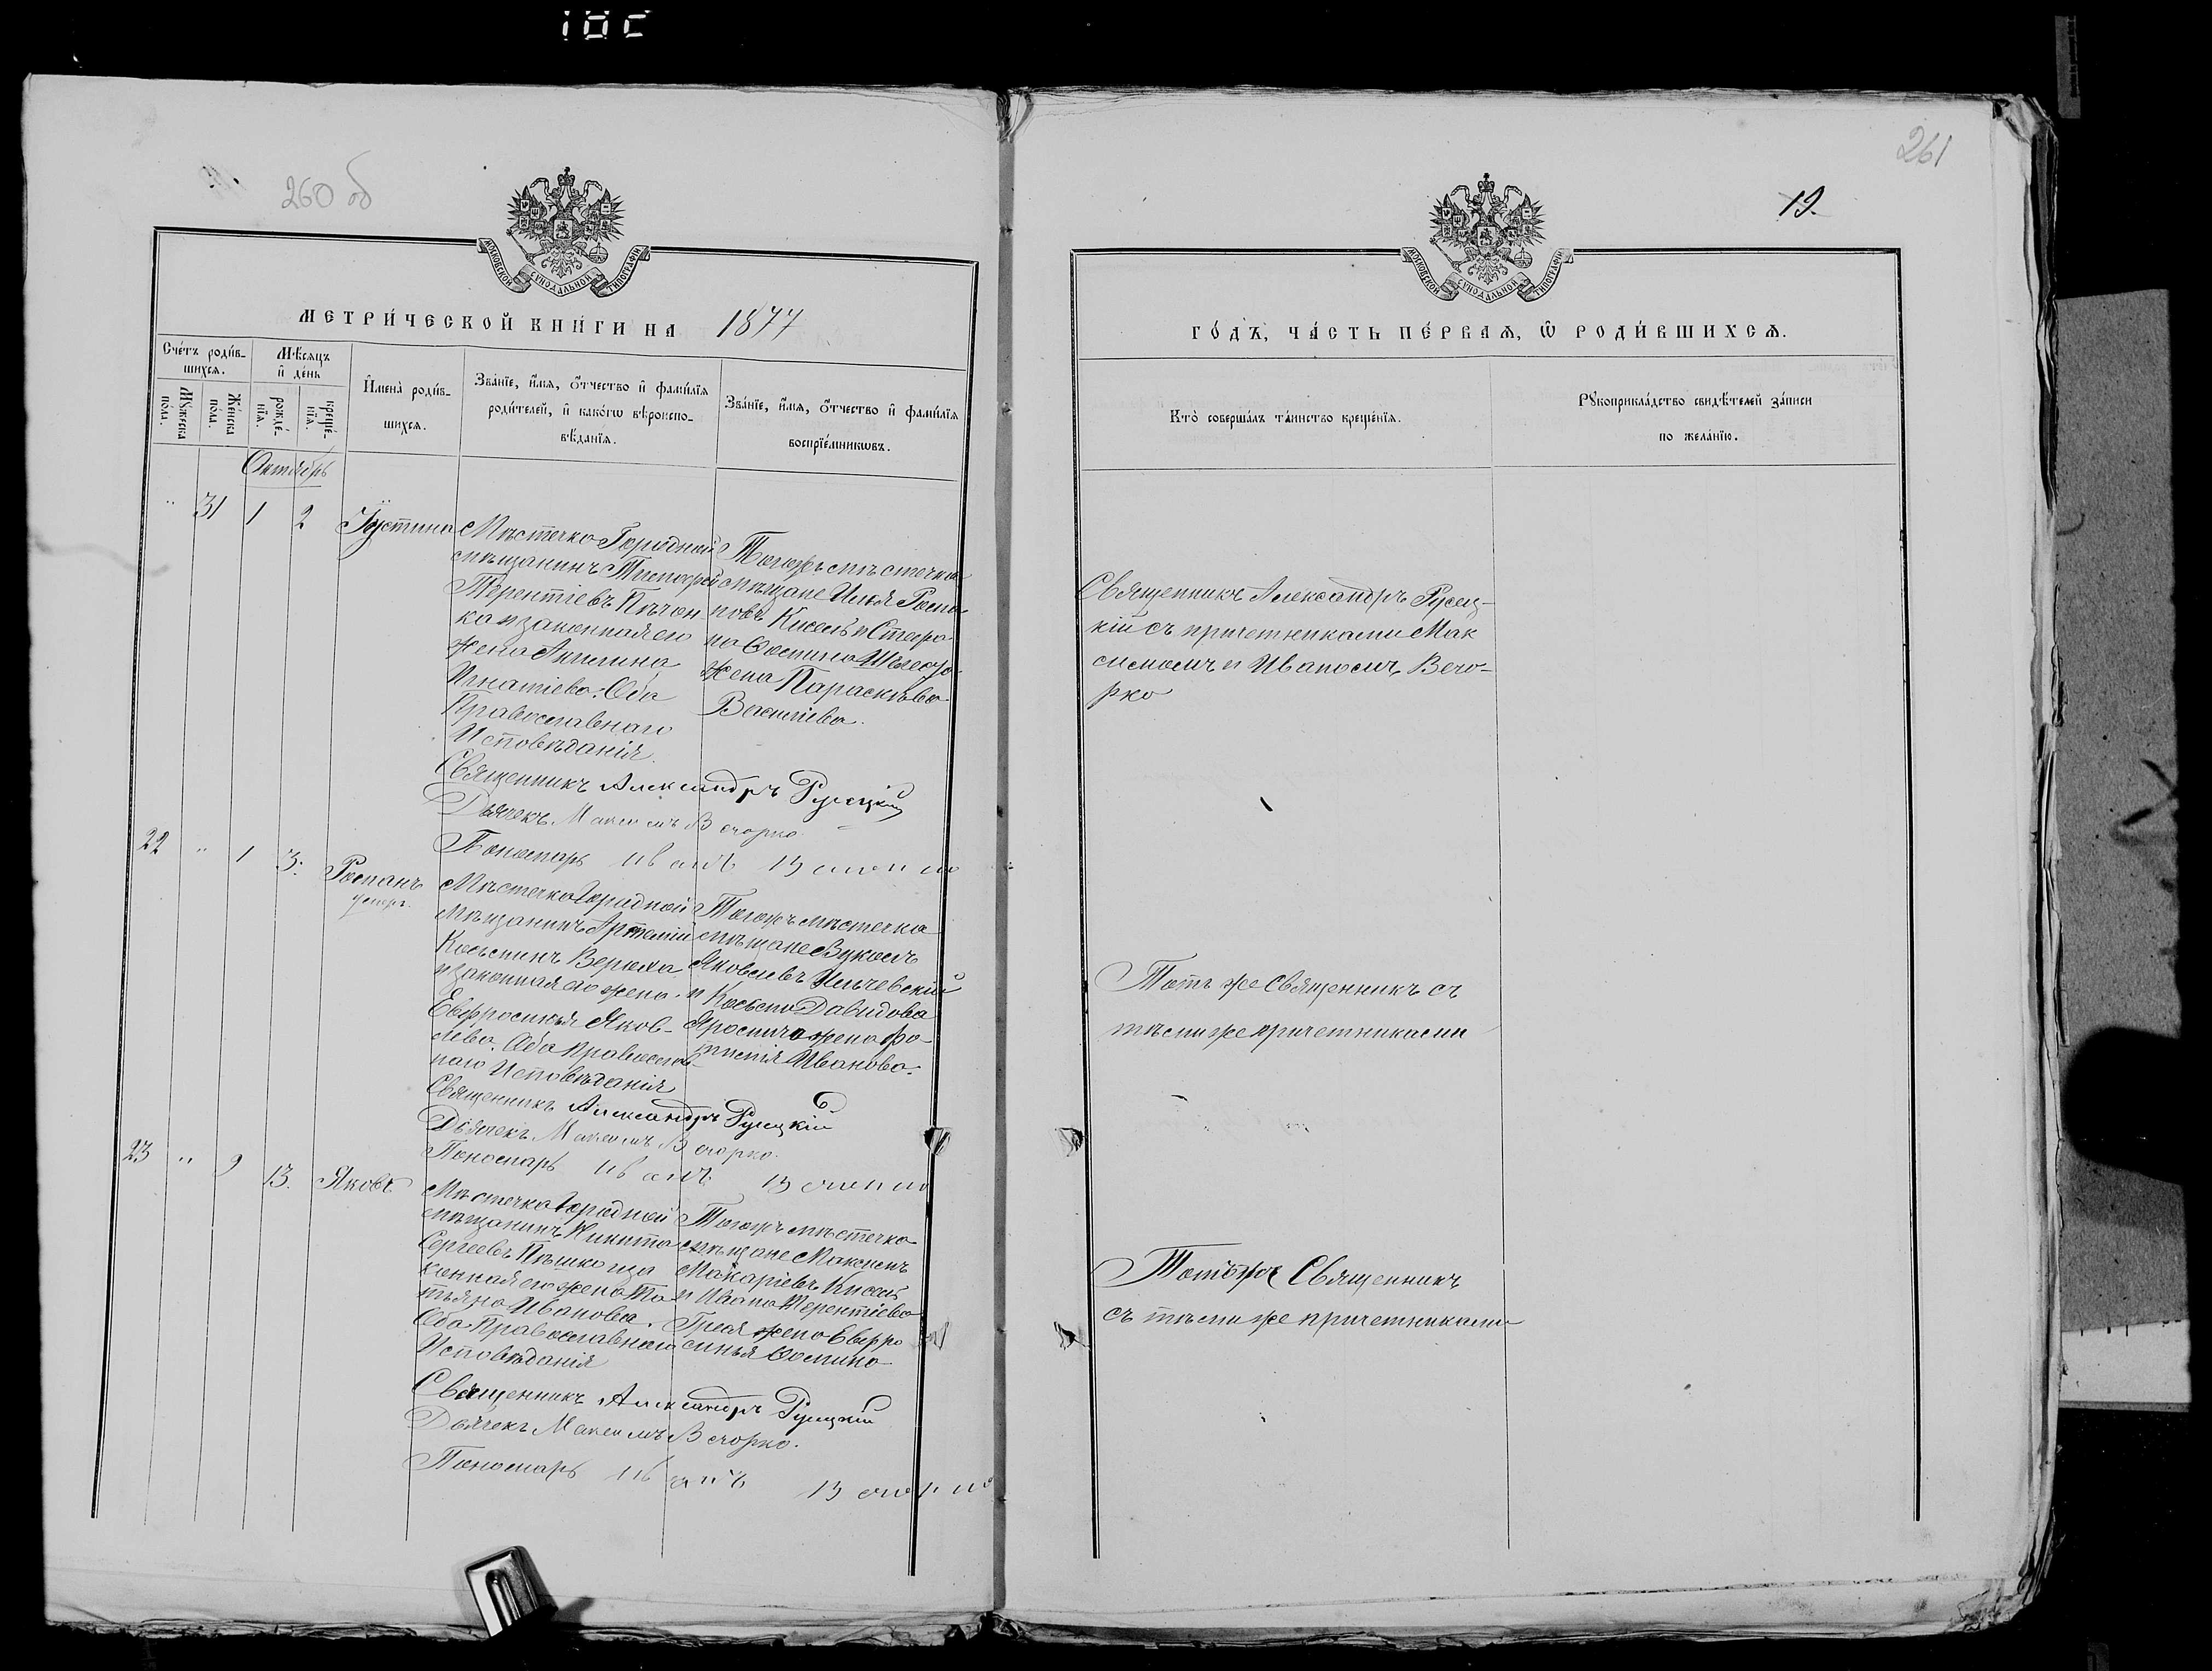 260 об
МОСКОВСКОЙ СУНОДАЛЬНОЙ ТИПОГРАФІИ
МЕТРИ́ЧЕСКОЙ КНИ́ГИ НА 1877
Сче́тъ роди́в-
шихсѧ.
Мꙋ́жеска
по́ла.
Же́нска
по́ла.
Мѣ́сяцъ
и҆ де́нь
рожде́-
нїѧ.
креще́-
нїѧ.
И҆мена̀ роди́в-
шихсѧ.
Зва́нїе, и҆́мѧ, ѻ҆́тчество и҆ фами́лїѧ
роди́телей, и҆ како́гѡ вѣроиспо-
вѣ́данїѧ.
Зва́нїе, и҆́мѧ, ѻ҆́тчество и҆ фами́лїѧ
воспрїе́мникѡвъ.
Октябрь
" 31 1 2 Іустина
Мѣстечка Городной
мѣщанинъ Тимофей
Терентіевъ
ка и законная его
жена Акилина
Игнатіева. Оба
Православнаго
Исповѣданія.
Тогожъ мѣстечка
мѣщане Илья Рома-
новъ Кисель и Стефа-
на Ѳомина
жена Параскѣва
Василіева.
Священникъ Александръ Русецкій
Дьячекъ Максимъ Вечорко.
Пономарь Иванъ Вечорко
22 " 1 3. Романъ
умеръ.
Мѣстечка Городной
Мѣщанинъ Артемій
Косьминъ Верюха
и законная его жена
Евфросинья Яков-
лева. Оба Православ-
наго Исповѣданія
Тогожъ мѣстечка
мѣщане Вуколъ
Яковлевъ Ильчевскій
и Косьмы Давидова
жена Фо-
Иванова.
Священникъ Александръ Русецкій
Дьячекъ Максимъ Вечорко.
Пономарь Иванъ Вечорко
23 " 9 13. Яковъ
Мѣстечка Городной
мѣщанинъ Никита
Сергеевъ Пѣшко и за
конная его жена Та
тьяна Ивановна.
Оба Православнаго
Исповѣданія
Тогожъ мѣстечка
мѣщане Максимъ
Макаріевъ Кисель
и Ивана Терентіева
жена Евфро
синья Ѳомина
Священникъ Александръ Русецкій
Дьячекъ Максимъ Вечорко.
Пономарь Иванъ Вечорко
261
19.
МОСКОВСКОЙ СУНОДАЛЬНОЙ ТИПОГРАФІИ
ГО́ДЪ, ЧА́СТЬ ПЕ́РВАѦ, Ѽ РОДИ́ВШИХСѦ.
Кто̀ соверша́лъ та́инство креще́нїѧ.
Рꙋкоприкла́дство свидѣ́телей за́писи
по жела́нїю.
Священникъ Александръ Русец-
кій съ причетниками Мак
симомъ и Иваномъ Вечо-
рко
Тотъ же Священникъ съ
тѣми же причетниками
Тотъ же Священникъ
съ тѣми же причетниками